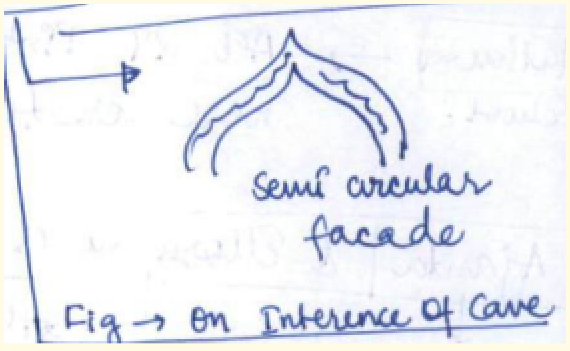 Semi circular
facade
Fig → On Interence Of Cave